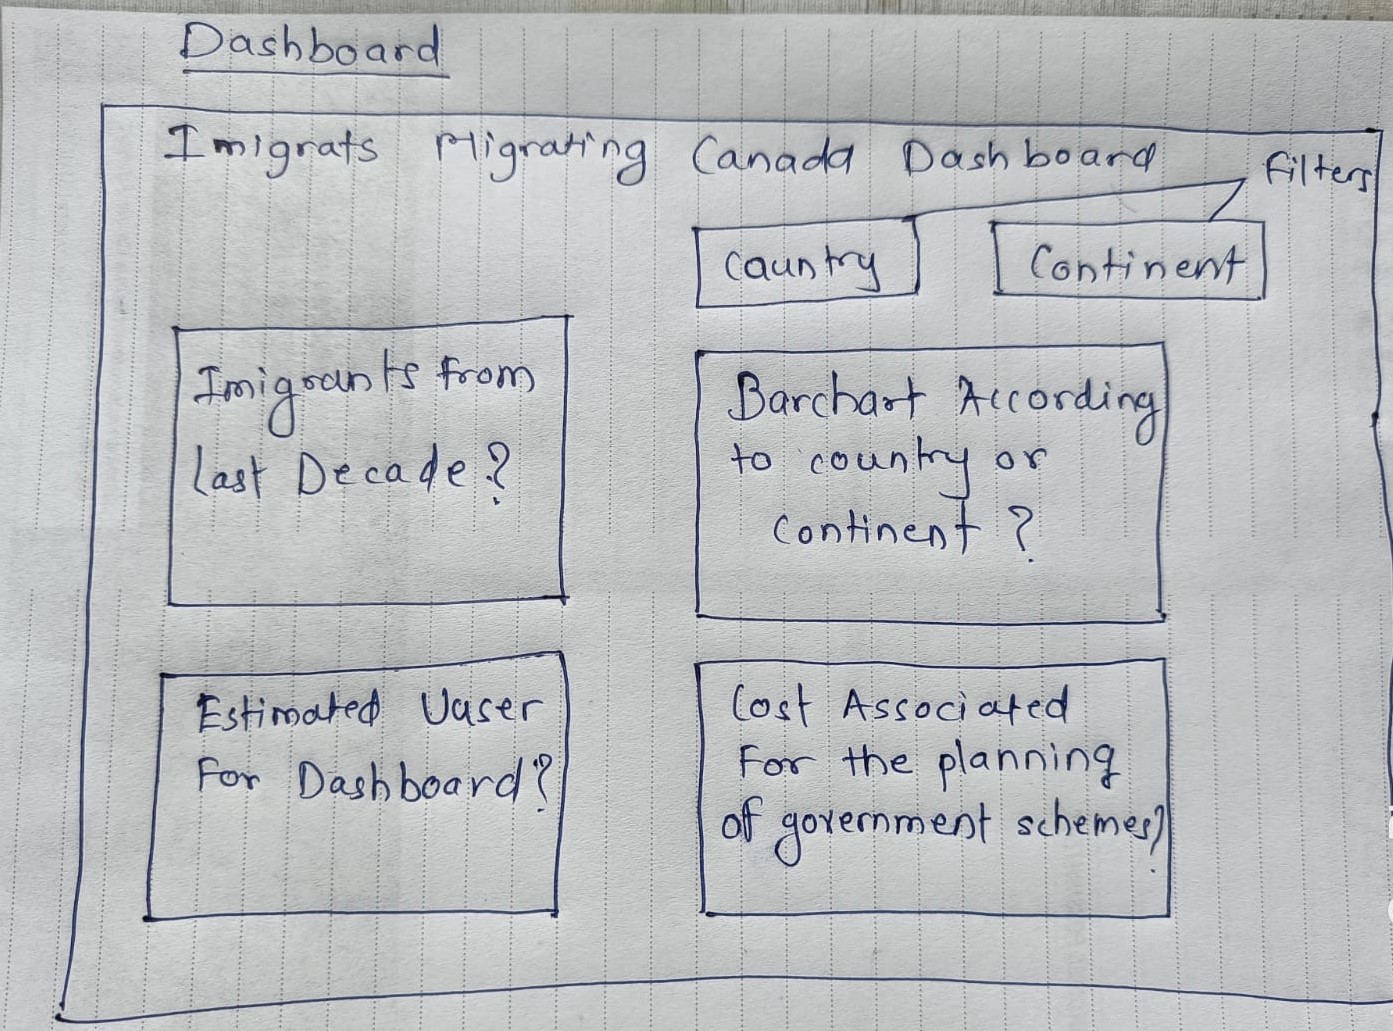 Dashboard
Imigrats Migrating Canada Dashboard
Filters
Cauntry
Continent
Imigrants from
last Decade?
Barchart According
to country or
continent ?
Estimated Uaser
For Dashboard?
Cost Associated
For the planning
of government schemes?